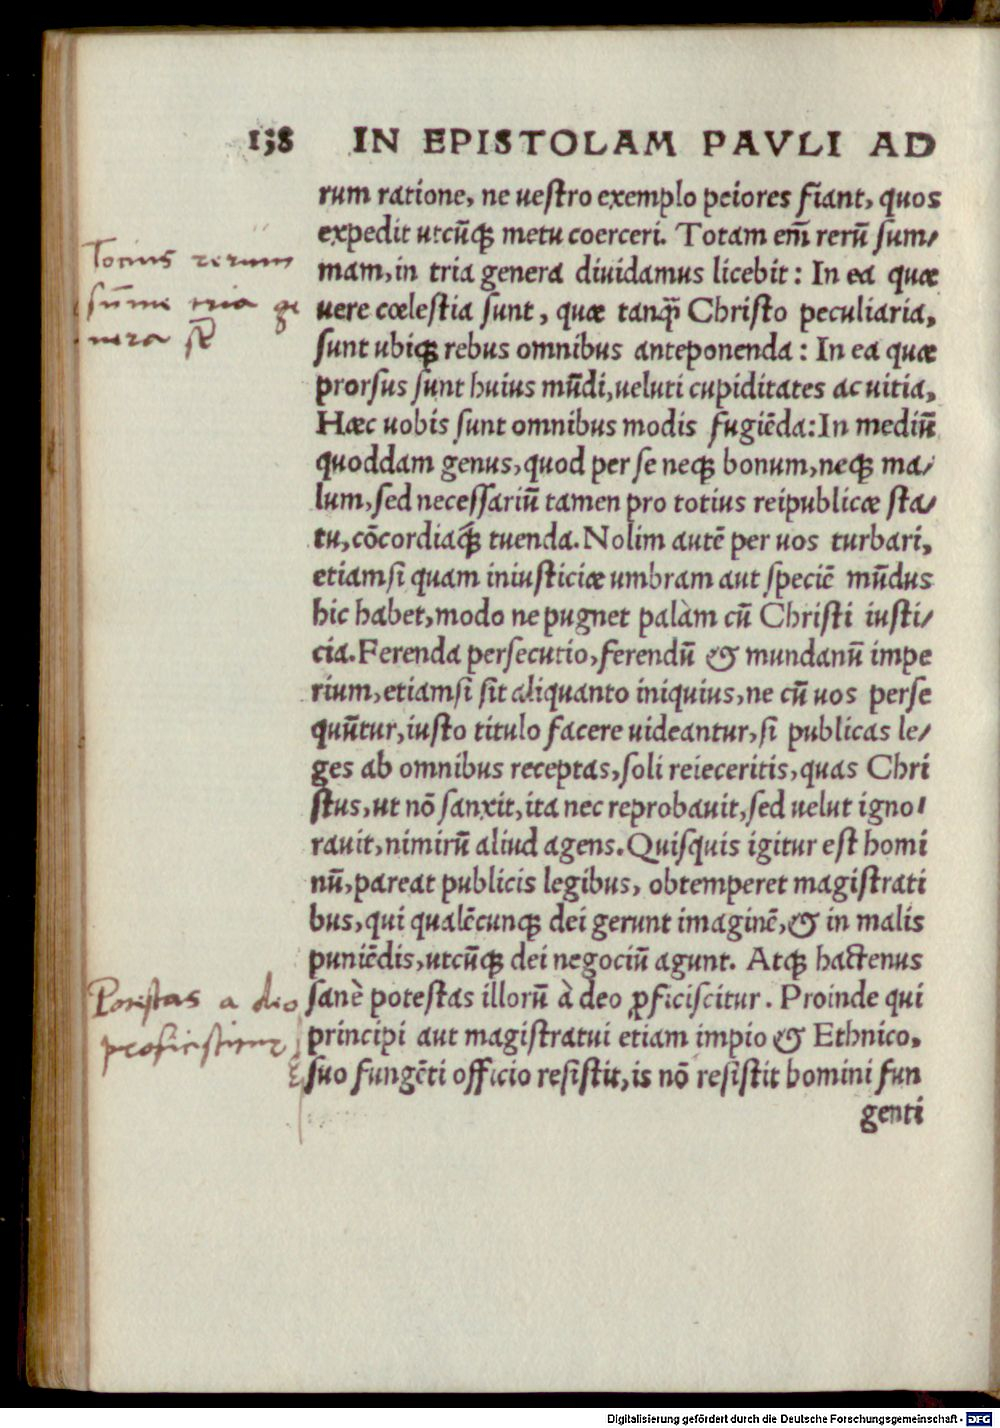 138 IN EPISTOLAM PAVLI AD
rum ratione, ne uestro exemplo peiores fiant, quos
expedit utcūq; metu coerceri. Totam em̄ rerū sum/
mam, in tria genera diuidamus licebit: In ea quæ
uere cœlestia sunt, quæ tanq̃ Christo peculiaria,
sunt ubiq; rebus omnibus anteponenda: In ea quæ
prorsus sunt huius mūdi, ueluti cupiditates ac uitia,
Hæc uobis sunt omnibus modis fugiēda: In mediū
quoddam genus, quod per se neq; bonum, neq; ma/
lum, sed necessariū tamen pro totius reipublicæ sta/
tu, cōcordiaq́; tuenda. Nolim autē per uos turbari,
etiamsi quam iniusticiæ umbram aut speciē mūdus
hic habet, modo ne pugnet palàm cū Christi iusti/
cia. Ferenda persecutio, ferendū & mundanū impe
rium, etiamsi sit aliquanto iniquius, ne cū uos perse
quūtur, iusto titulo facere uideantur, si publicas le/
ges ab omnibus receptas, soli reieceritis, quas Chri
stus, ut nō sanxit, ita nec reprobauit, sed uelut igno/
rauit, nimirū aliud agens. Quisquis igitur est homi
nū, pareat publicis legibus, obtemperet magistrati
bus, qui qualēcunq; dei gerunt imaginē, & in malis
puniēdis, utcūq; dei negociū agunt. Atq; hactenus
sanè potestas illorū à deo ꝓficiscitur. Proinde qui
principi aut magistratui etiam impio & Ethnico,
suo fungēti officio resistit, is nō resistit homini fun
genti
Tocius rerum
sūme tria ge
nera sūt
Potestas a deo
proficiscitur
Digitalisierung gefördert durch die Deutsche Forschungsgemeinschaft - DFG